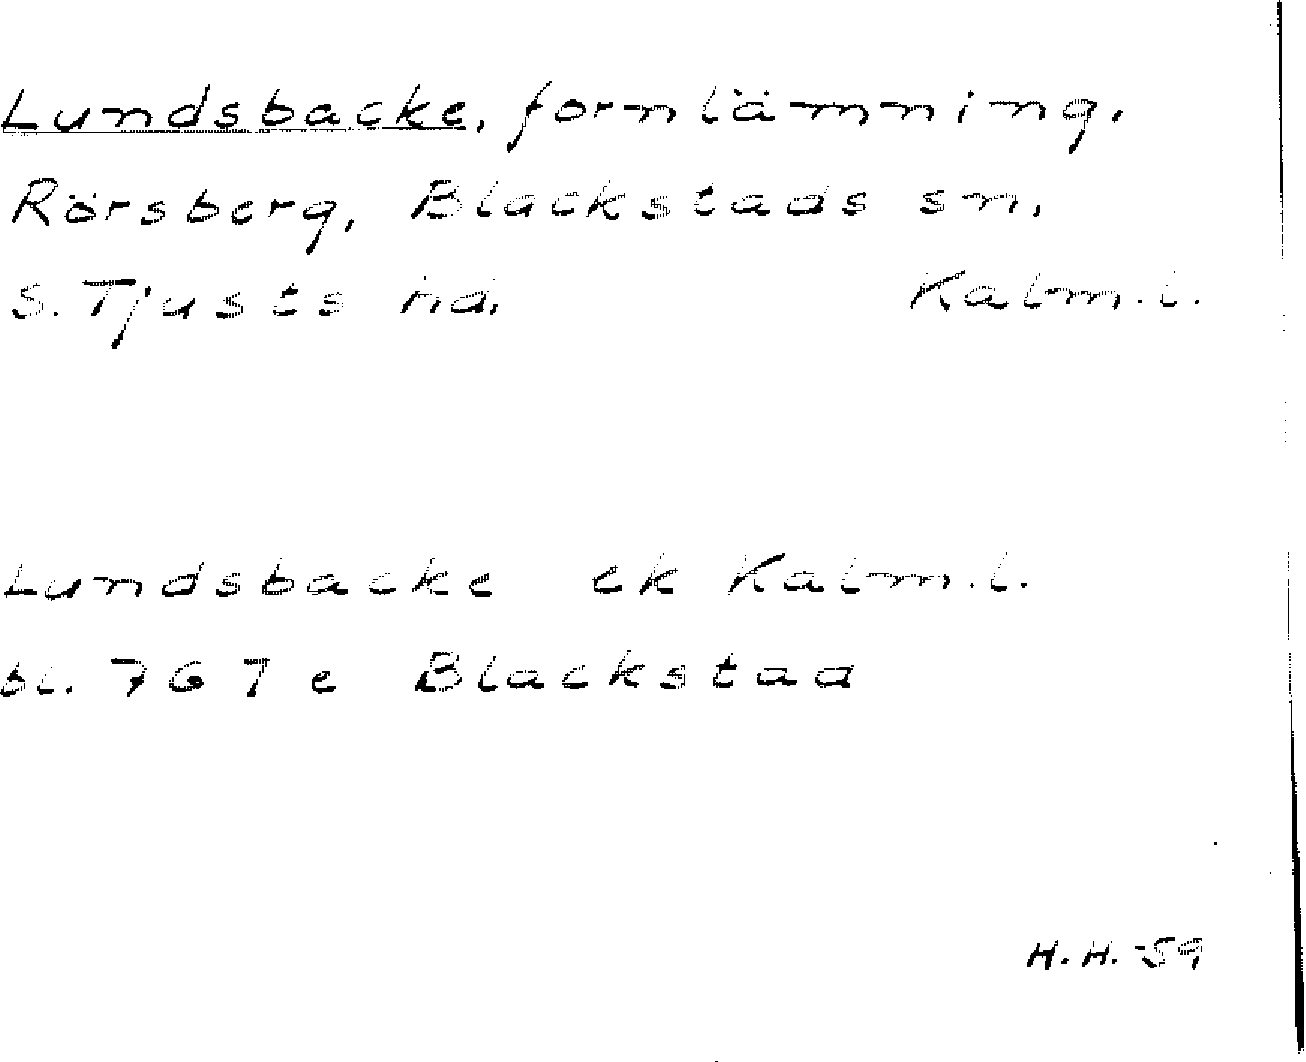 Lundsbacke, fornlämning,
Rörsberg, Blackstads sn,
S. Tjusts hd. Kalm.l.
Lundsbacke ek Kalm.l.
bl. 767 e Blackstad
H.H. -59